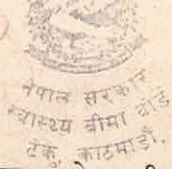 नेपाल सरकार
स्वास्थ्य बीमा बोर्ड
टेकु, काठमाडौं.